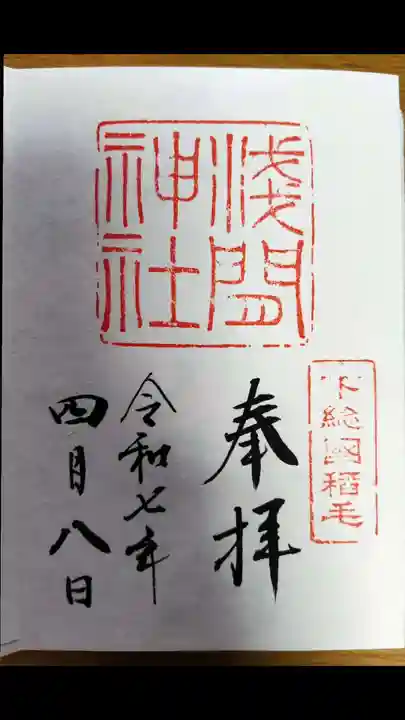 浅間
神社
下総國稲毛
奉拝
令和七年
四月八日